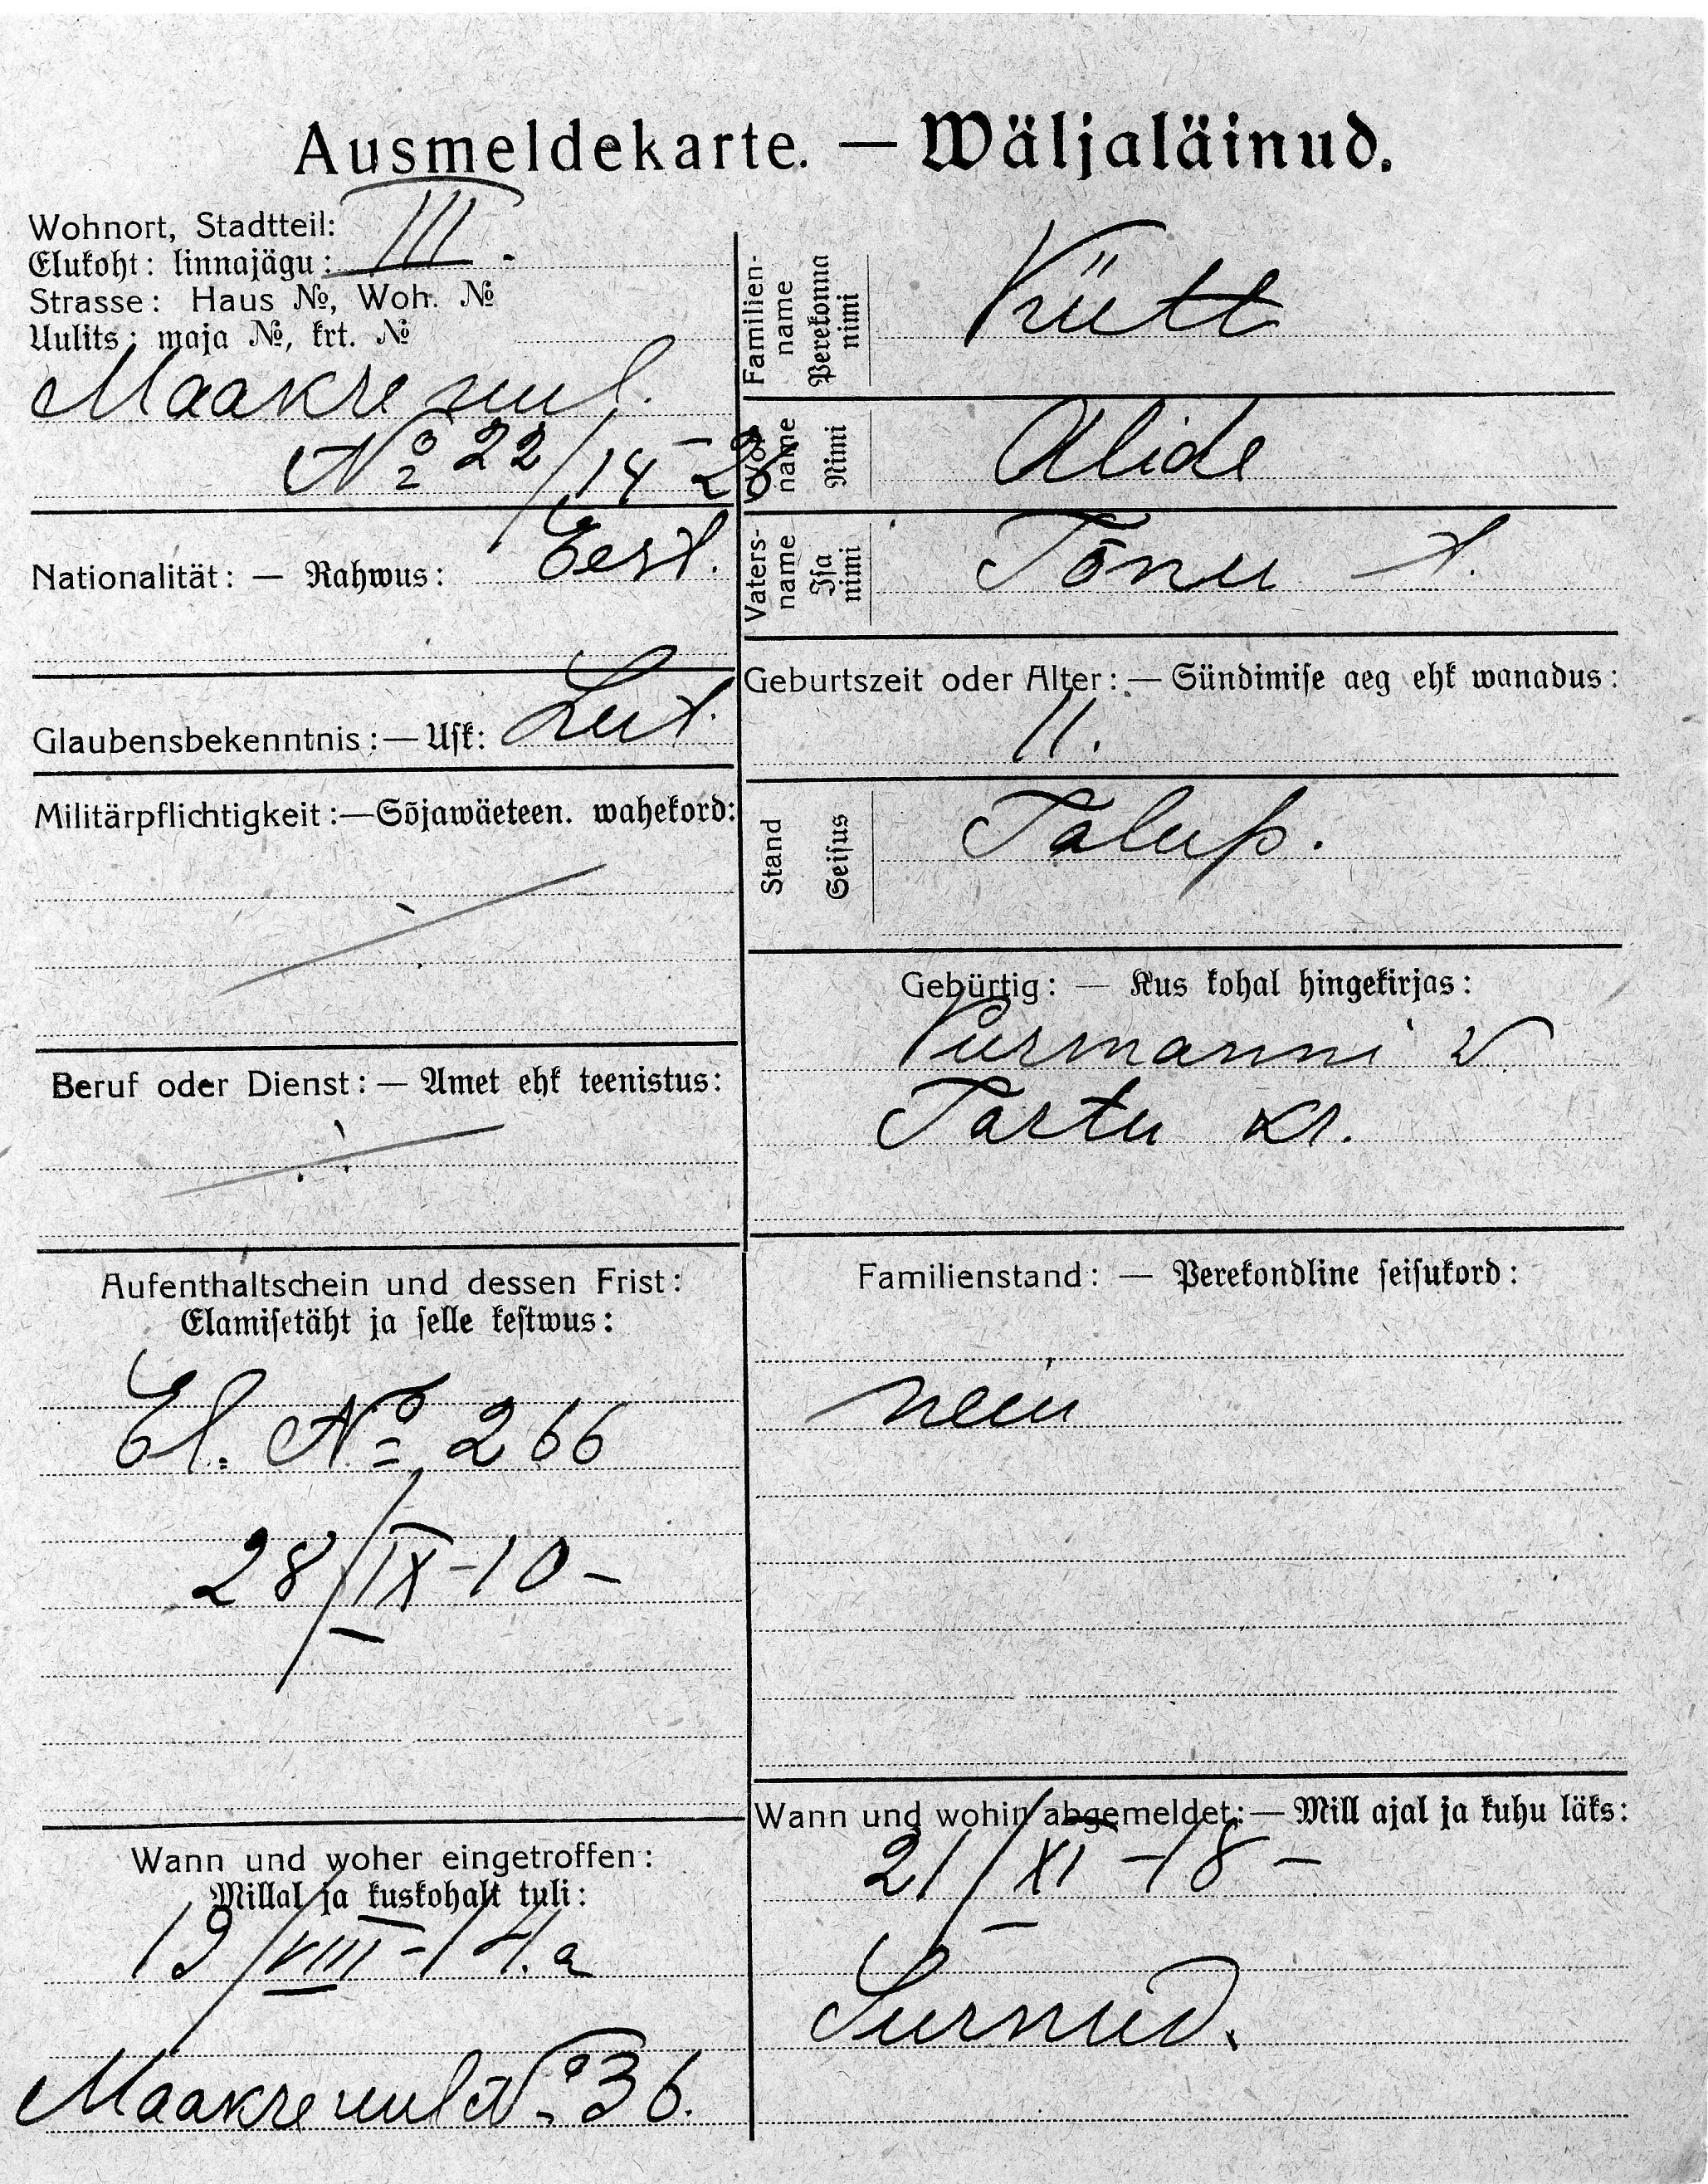 Ausmeldekarte. — Wäljaläinud.
Wohnort, Stadtteil:
Elukoht: linnajägu: III.
Strasse: Haus №, Woh. №
Uulits: maja №, krt. №
Maakre uul.
№ 22/14-26
Nationalität: — Rahwus: Eest.
Glaubensbekenntnis: — Usk: Lut.
Militärpflichtigkeit: — Sõjawäeteen. wahekord:
Beruf oder Dienst: — Amet ehk teenistus:
Aufenthaltschein und dessen Frist:
Elamisetäht ja selle kestwus:
El. № 266
28/IX-10-
Wann und woher eingetroffen:
Millal ja kuskohalt tuli:
19/VIII-14. a
Maakre uul № 36.
Familien-
name
Perekonna
nimi
Kütt
Vor-
name
Nimi
Alide
Vaters-
name
Isa
nimi
Tõnu t.
Geburtszeit oder Alter: — Sündimise aeg ehk wanadus:
11.
Stand
Seisus
Talup.
Gebürtig: — Kus kohal hingekirjas:
Kursmanni w
Tartu kr.
Familienstand: — Perekondline seisukord:
neiu
Wann und wohin abgemeldet: — Mill ajal ja kuhu läks:
21/XI-18-
Surnud.